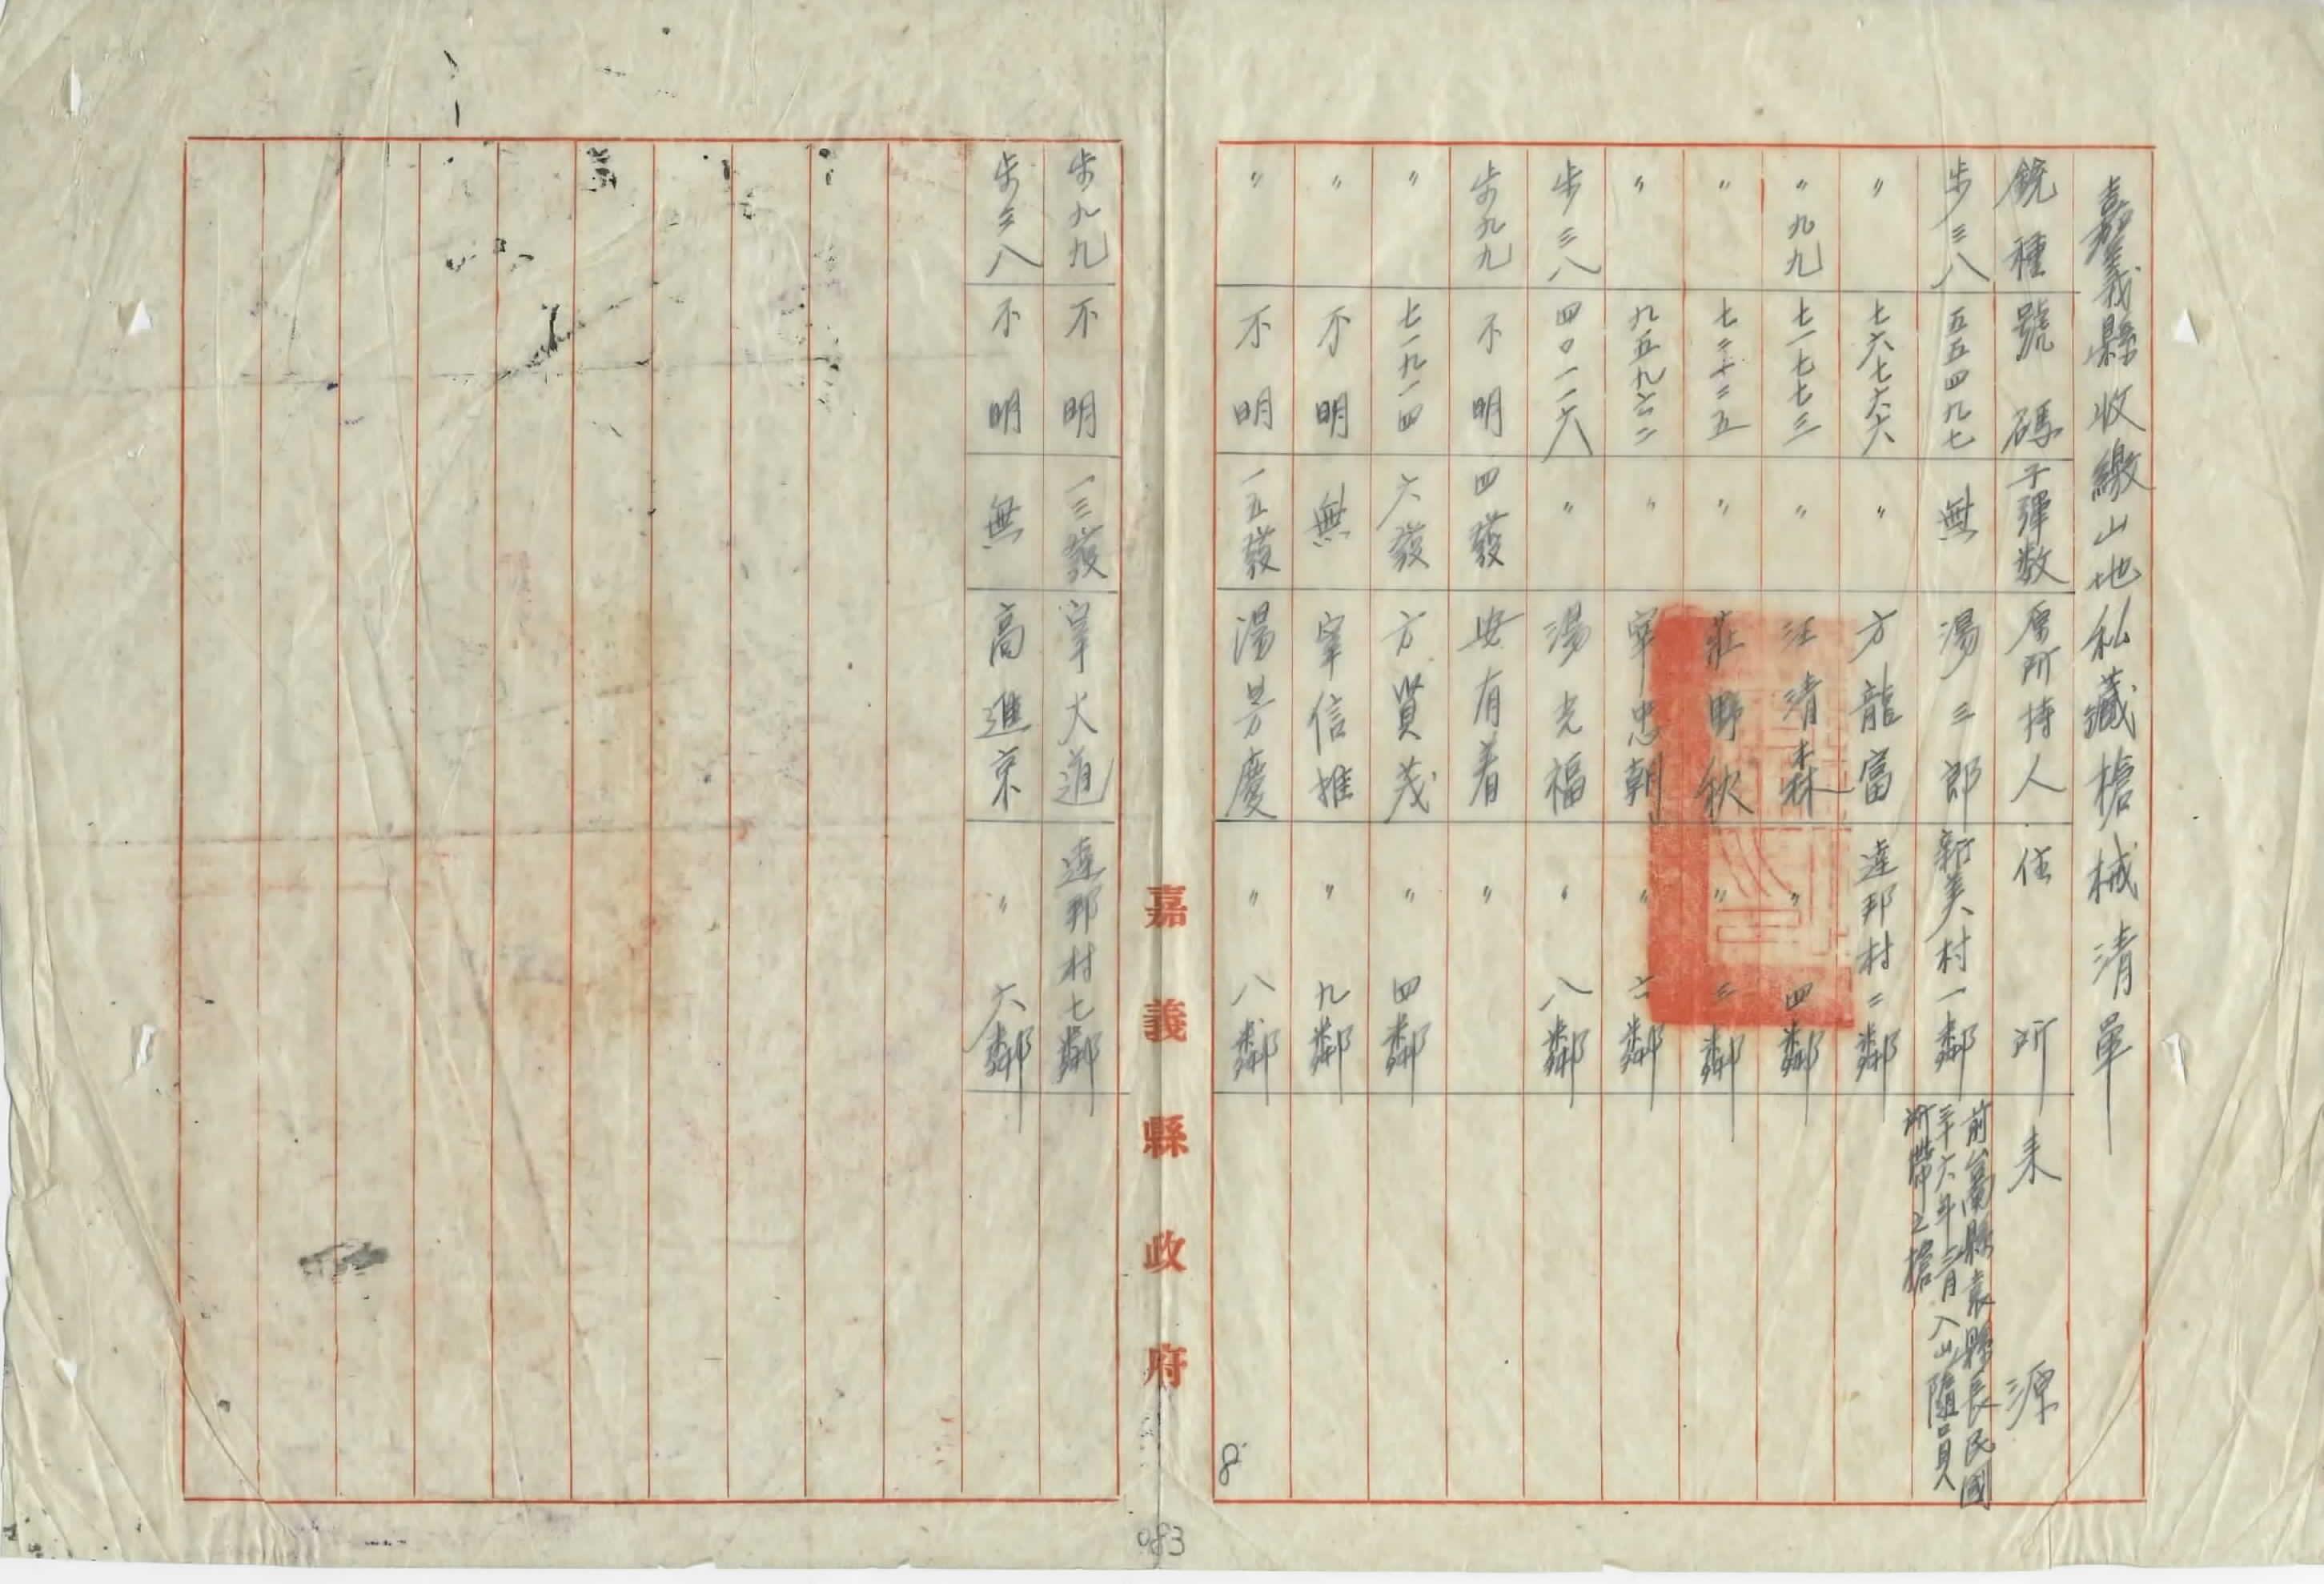 嘉義縣收繳山地私藏槍械清單
銃種 號碼 子彈数 原所持人 住所 来源
步三八 五五四九七 無 湯三郎 新美村一鄰 前臺南縣袁縣長民國三十六年三月入山隨員所帶之槍
〃 七六七六六 〃 方龍富 達邦村二鄰
〃九九 七一七七三 〃 汪清森 〃 四鄰
〃 七二十二五 〃 莊野秋 〃 三鄰
〃 九五九六二 〃 宰忠朝 〃 六鄰
步三八 四〇一一六 〃 湯光福 〃 八鄰
步九九 不明 四發 安有着 〃
〃 七一九一四 六發 方賢茂 〃 四鄰
〃 不明 無 宰信推 〃 九鄰
〃 不明 一五發 湯芳慶 〃 八鄰
8
嘉義縣政府
083
步九九 不明 一三發 宰大道 達邦村七鄰
步三八 不明 無 高進京 〃 六鄰